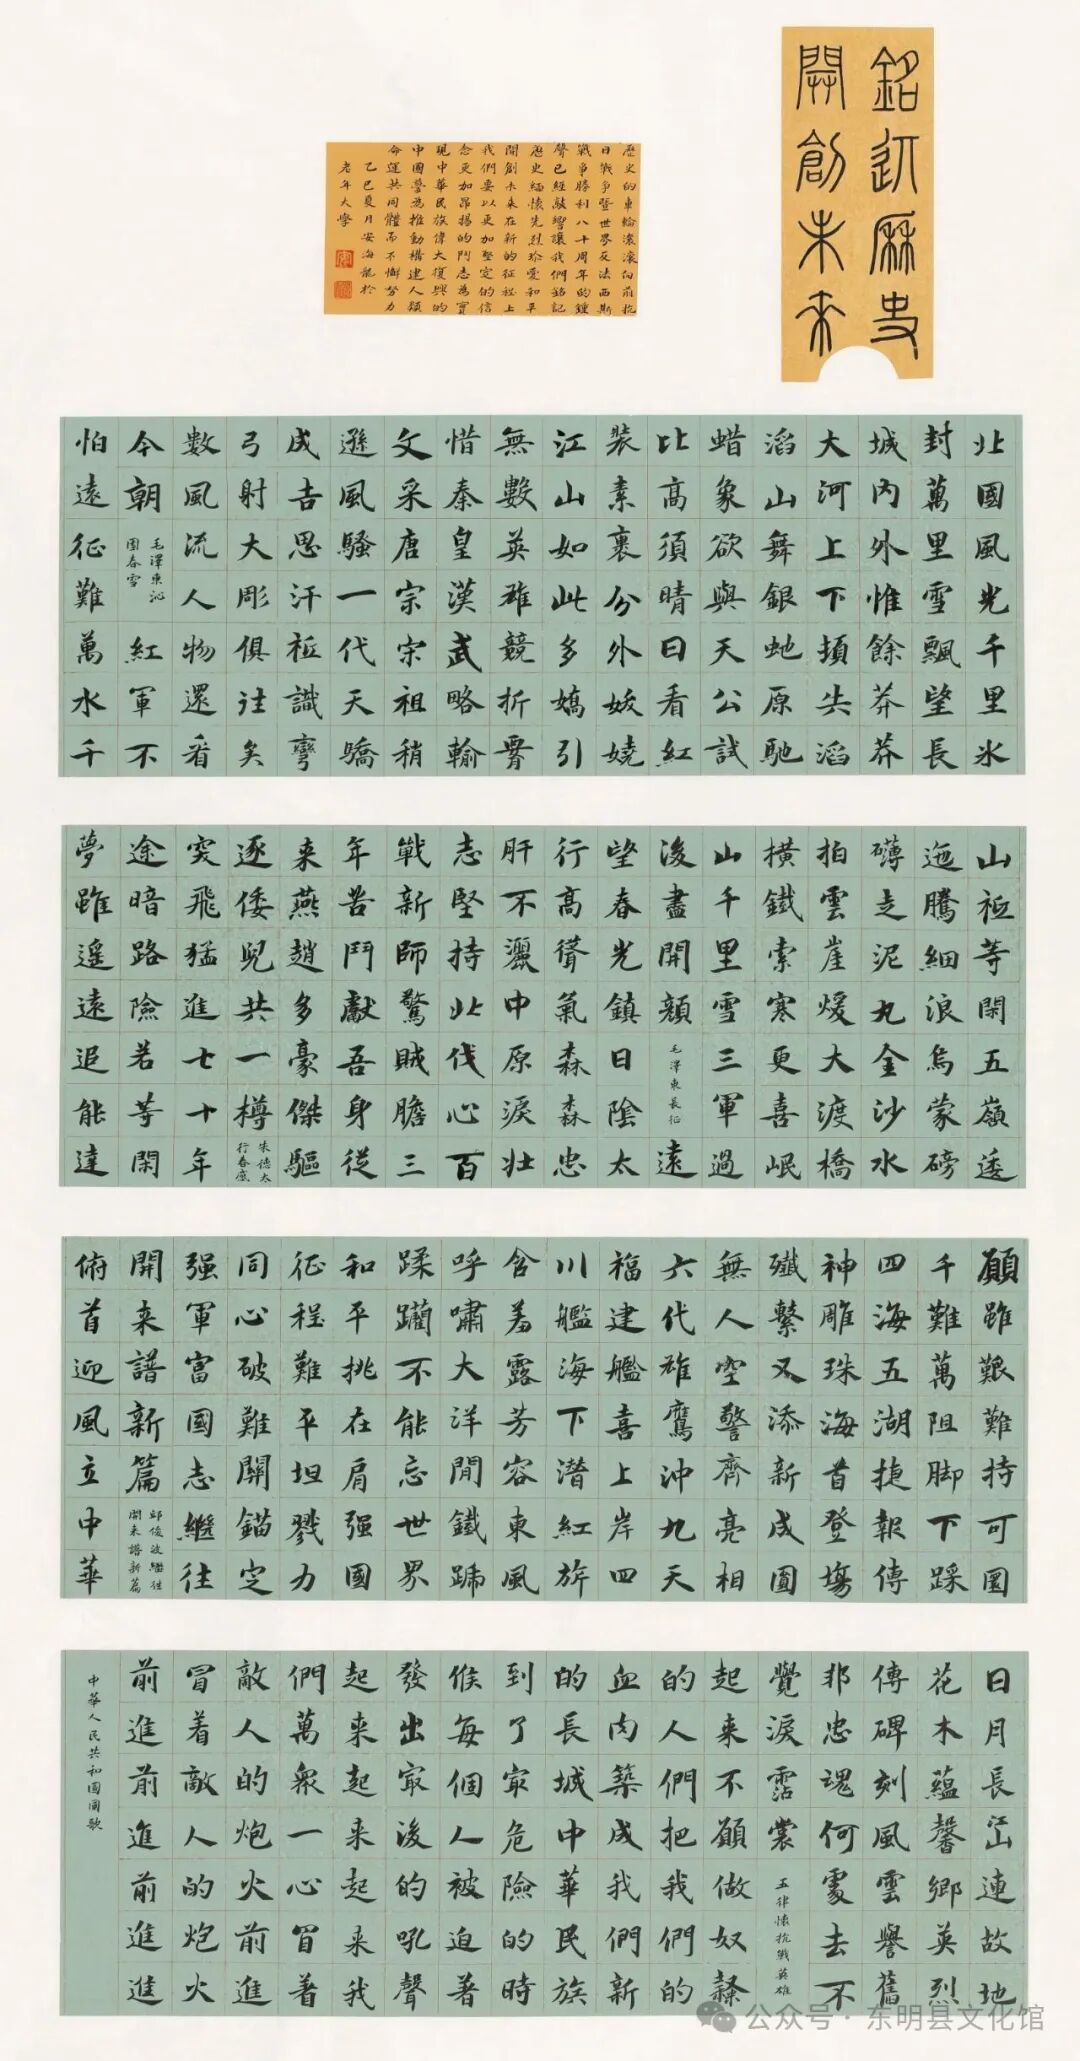 銘記歷史
開創未来
歷史的車輪滾滾向前抗
日戰爭暨世界反法西斯
戰爭勝利八十周年的鍾
聲已經敲響讓我們銘記
歷史緬懷先烈珍愛和平
開創未来在新的征程上
我們要以更加堅定的信
念更加昂揚的鬥志為實
現中華民族偉大復興的
中國夢為推動構建人類
命運共同體而不懈努力
乙巳夏月安海龍於
老年大學
北國風光千里冰
封萬里雪飄望長
城內外惟餘莽莽
大河上下頓失滔
滔山舞銀虵原馳
蜡象欲與天公試
比高須晴日看紅
裝素裹分外妖嬈
江山如此多嬌引
無數英雄競折腰
惜秦皇漢武略輸
文采唐宗宋祖稍
遜風騷一代天驕
成吉思汗衹識彎
弓射大彫俱往矣
數風流人物還看
今朝 毛澤東沁園春雪 紅軍不
怕遠征難萬水千
山衹等閑五嶺逶
迤騰細浪烏蒙磅
礴走泥丸金沙水
拍雲崖煖大渡橋
橫鐵索寒更喜岷
山千里雪三軍過
後盡開顏 毛澤東長征 遠
望春光鎮日陰太
行高聳氣森森忠
肝不灑中原淚壯
志堅持北伐心百
戰新師驚賊膽三
年苦鬥獻吾身從
来燕趙多豪傑驅
逐倭兒共一樽 朱德太行春感
突飛猛進七十年
途暗路險若等閑
夢雖遙遠追能達
願雖艱難持可圓
千難萬阻脚下踩
四海五湖捷報傳
神雕珠海首登場
殲繫又添新成圓
無人空警齊亮相
六代雄鷹沖九天
福建艦喜上岸四
川艦海下潛紅旂
含羞露芳容東風
呼嘯大洋閒鐵蹄
蹂躪不能忘世界
和平挑在肩强國
征程難平坦戮力
同心破難關錨定
强軍富國志繼往
開来譜新篇 邱俊波繼往開来譜新篇
俯首迎風立中華
日月長江山連故地
花木蘊馨鄉英烈
傳碑刻風雲譽舊
邦忠魂何處去不
覺淚霑裳 五律懷抗戰英雄
起来不願做奴隸
的人們把我們的
血肉築成我們新
的長城中華民族
到了㝡危險的時
候每個人被迫着
發出㝡後的吼聲
起来起来起来我
們萬衆一心冒着
敵人的炮火前進
冒着敵人的炮火
前進前進前進進
中華人民共和國國歌
公众号·东明县文化馆